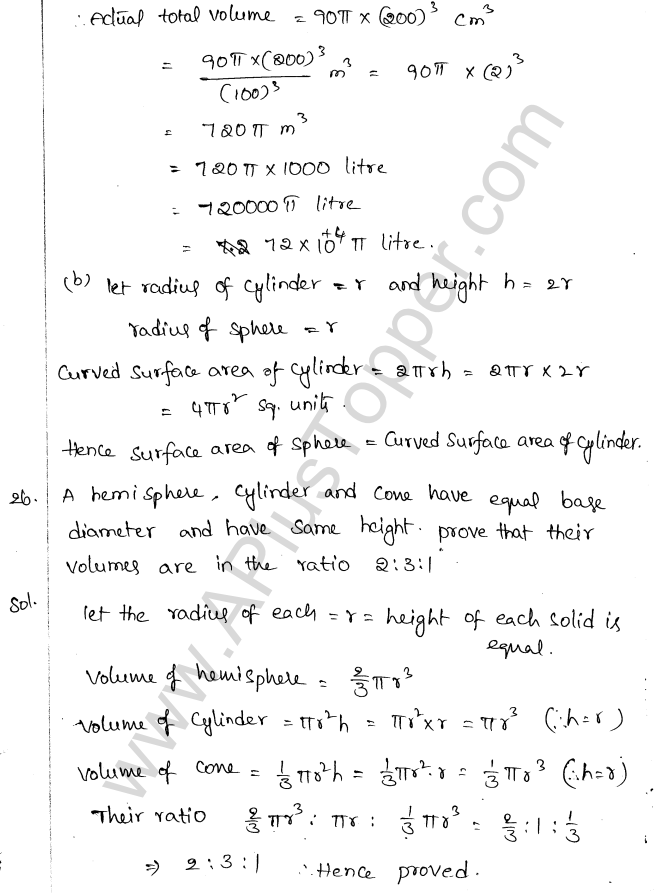 ∴ Actual total volume = 90π × (200)³ cm³
= 90π×(200)³ / (100)³ m³ = 90π × (2)³
= 720π m³
= 720π × 1000 litre
= 720000π litre
= 72 × 10⁺⁴ π litre.
(b) let radius of cylinder = r and height h = 2r
radius of sphere = r
Curved surface area of cylinder = 2πrh = 2πr × 2r
= 4πr² sq. units.
Hence surface area of sphere = Curved surface area of cylinder.
26. A hemisphere, cylinder and cone have equal base
diameter and have same height. prove that their
volumes are in the ratio 2:3:1
Sol. let the radius of each = r = height of each solid is
equal.
Volume of hemisphere = 2/3 πr³
Volume of cylinder = πr²h = πr²×r = πr³ (∵h=r)
Volume of cone = 1/3 πr²h = 1/3 πr²·r = 1/3 πr³ (∴h=r)
Their ratio 2/3 πr³ : πr : 1/3 πr³ = 2/3 : 1 : 1/3
⇒ 2:3:1 ∴Hence proved.
www.APlusTopper.com